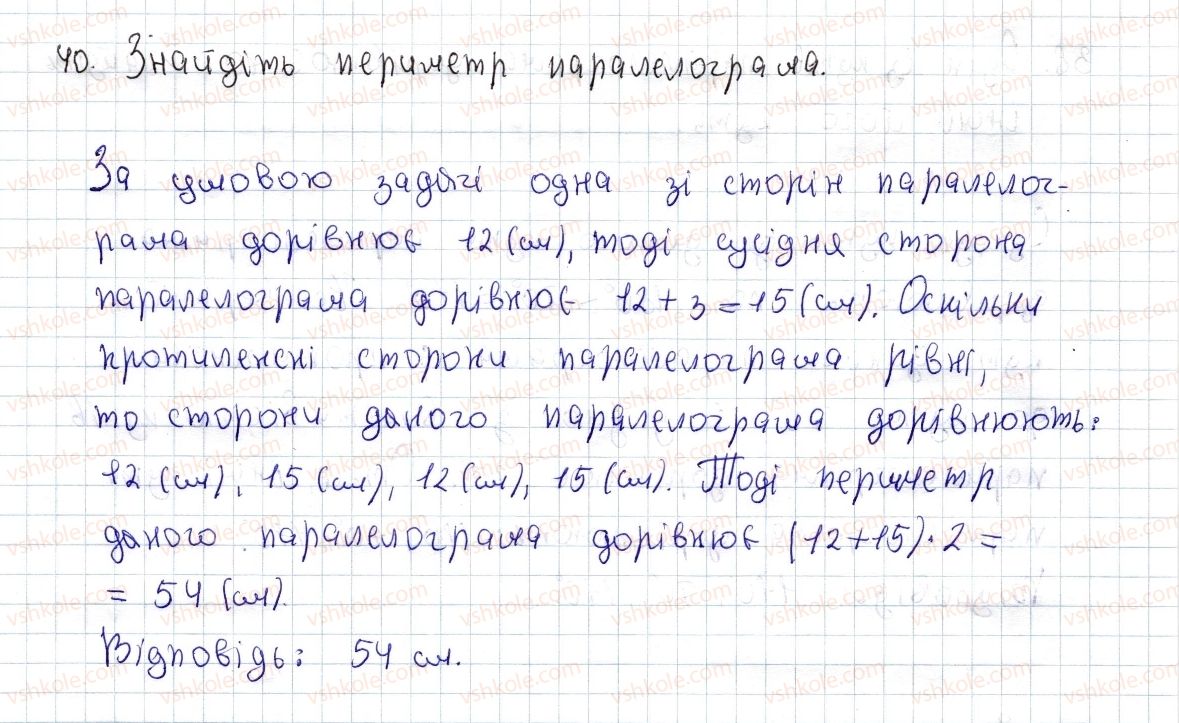 40. Знайдіть периметр паралелограма.
За умовою задачі одна зі сторін паралелог-
рама дорівнює 12 (см), тоді сусідня сторона
паралелограма дорівнює 12 + 3 = 15 (см). Оскільки
протилежні сторони паралелограма рівні,
то сторони даного паралелограма дорівнюють:
12 (см), 15 (см), 12 (см), 15 (см). Тоді периметр
даного паралелограма дорівнює (12+15)·2 =
= 54 (см).
Відповідь: 54 см.